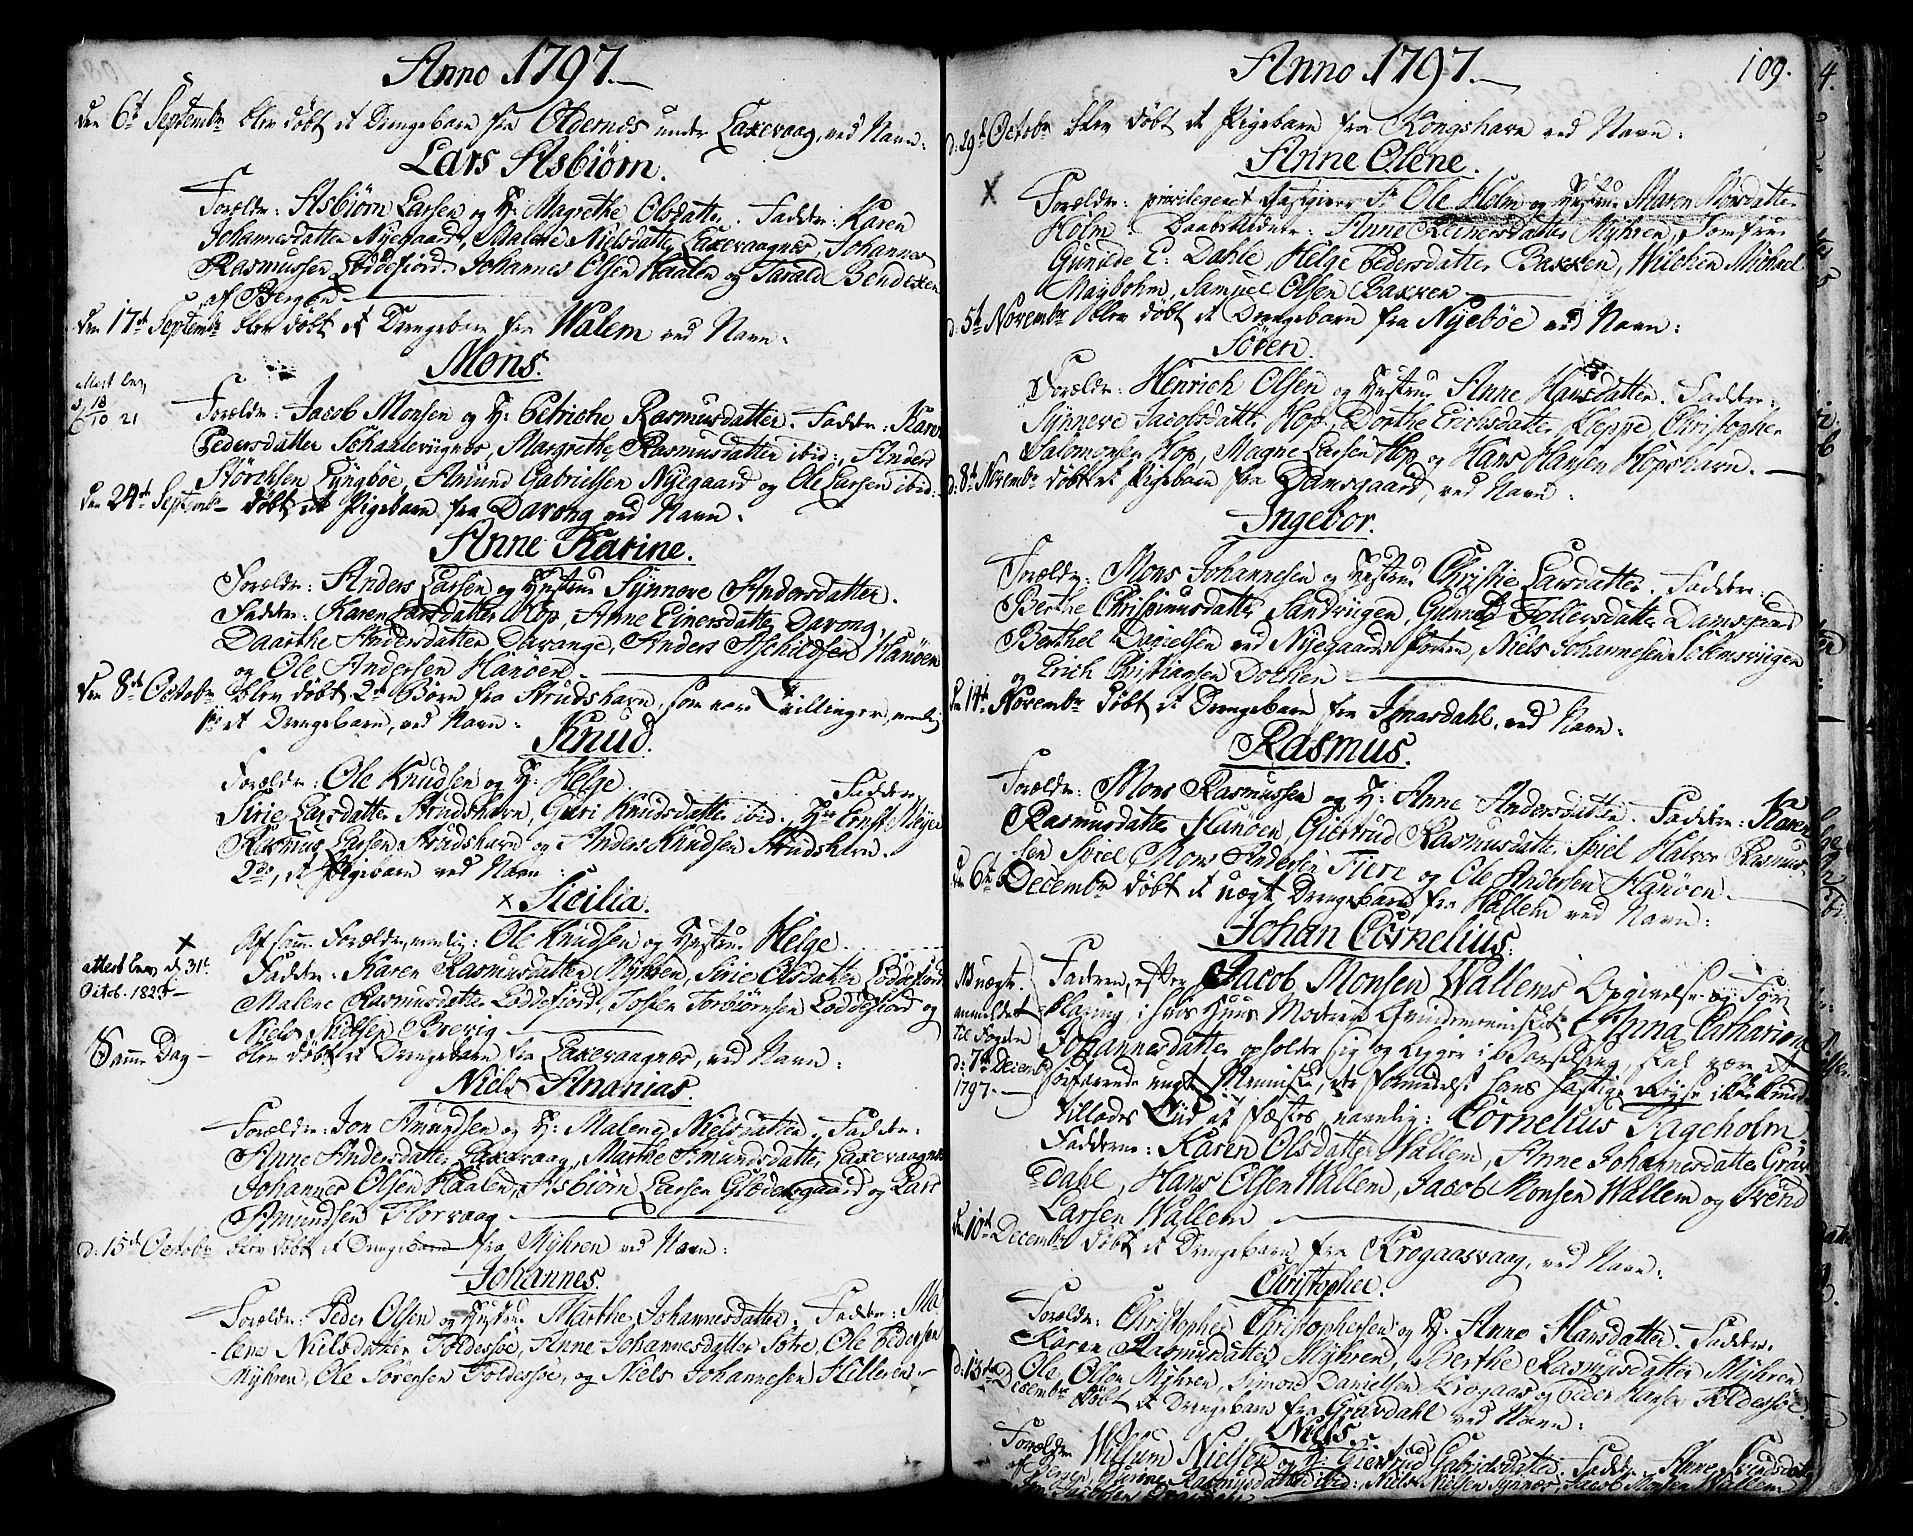 Anno 1797.
Den 6te Septembr blev døbt et Drengebarn fra Oldernæs under Laxevaag, ved Navn:
Lars Asbiørn.
Forældr: Asbiørn Larsen og H: Magrethe Olsdatter. Faddr: Karen
Johannesdatter Nyegaard, Malene Nielsdatter Laxevaagnæs, Johannes
Rasmussen Loddefiord. Johannes Olsen Haalen og Tarald Bendixen
af Bergen
Den 17de Septembr blev døbt et Drengebarn fra Walem ved Navn:
Mons.
attest lev
d 18/10 21
Forældr: Jacob Monsen og H: Petriche Rasmusdatter. Faddr: Karen
Pedersdatter Schaaleviignæs, Margrethe Rasmusdatter ibid:, Anders
Størchsen Lyngbøe, Amund Gabrielsen Nyegaard og Ole Larsen ibid:
Den 24de Septembr døbt et Pigebarn fra Davong ved Navn:
Anne Karine.
Forældr: Anders Larsen og Hustrue Synneve Andersdatter.
Faddr: Karen Larsdatter Hop, Anne Einersdatter Davong,
Daarthe Andersdatter Davange, Anders Aschildsen Hanøen
og Ole Andersen Hanøen.
Den 8de Octobr blev døbt 2de Børn fra Strudshavn, som var Tvillinger, nemlig
1mo et Drengebarn, ved Navn:
Knud.
Forældr: Ole Knudsen og H: Helge
Faddr:
Sirie Larsdatter Strudshavn, Guri Knudsdatter ibid:, Hr Ernst Meyer
Rasmus Larsen Strudshavn og Anders Knudsen Strudshavn.
2do, et Pigebarn ved Navn:
× Sicilia.
×
attest lev d 31te
Octob. 1825
Af samme Forældre, nemlig: Ole Knudsen og Hustrue Helge
Faddr: Karen Rasmusdatter Myhren, Sirie Olsdatter Loddefiord
Malene Rasmusdatter Loddefiord, Tosten Torbiørnsen Loddefiord og
Niels Nielsen Brevig
Samme Dag blev døbt et Drengebarn fra Laxevaagnæs, ved Navn:
Niels Ananias.
Forældr: Jon Amundsen og H: Malene Nielsdatter. Faddr:
Anne Andersdatter Laxevaag, Marthe Amundsdatter Laxevaagnæs
Johannes Olsen Haalen, Asbiørn Larsen Glædersgaard og Lars
Amundsen Florvaag
d: 15de Octobr blev døbt et Drengebarn fra Myhren ved Navn:
Johannes.
Forældr: Peder Olsen og Hustrue Marthe Johannesdatter. Faddr: Ma-
lene Nielsdatter Toldessøe, Anne Johannesdatter Sotre, Ole Pedersen
Myhren, Ole Sørensen Toldessøe, og Niels Johannesen Helleren.
Anno 1797.
109.
d: 29de Octobr blev døbt et Pigebarn fra Kongshavn ved Navn:
Anne Olene.
×
Forældr: privilegeret Giæstgiver Sr Ole Holm og Hustrue Maren Monsdatter
Holm. Daabsvidner: Anne Reinersdatter Myhren, Jomfrue
Gunilde E: Dahle, Helge Pedersdatter Bakken, Wilchen Michael
Mayböhm, Samuel Olsen Bakken
d. 5te Novembr blev døbt et Drengebarn fra Nyebøe ved Navn:
Søren.
Forældr: Henrich Olsen og Hustrue Anne Hansdatter. Faddr:
Synneve Jacobsdatter Hop, Dorthe Erichsdatter Kleppe, Christopher
Salomonsen Hop, Magne Larsen Hop og Hans Hansen Hopshavn.
d. 8de Novembr døbt et Pigebarn fra Damsgaard, ved Navn:
Ingebor.
Forældr: Mons Johannesen og Hustrue Christie Larsdatter. Faddr:
Berthe Christensdatter Sandviigen, Gunnild Tollersdatter Damsgaard
Berthel Danielsen ved Nyegaards Porten, Niels Johannesen Solhmsviigen
og Erich Christiansen Dochen
Den 14de Novembr døbt et Drengebarn fra Jonasdahl, ved Navn:
Rasmus.
Forældr: Mons Rasmussen og H: Anne Andersdatter. Faddr: Karen
Rasmusdatter Hanøen, Giertrud Rasmusdatter Spiel Halvor Rasmus-
sen Spiel Mons Andersen Tiere og Ole Andersen Hanøen.
Den 6te Decembr døbt et uægte Drengebarn fra Wallem ved Navn:
Johan Cornelius.
Det uægte
anmeldet
til Fogden
d: 7de Decembr
1797.
Faderen, efter Jacob Monsen Wallems Opgivelse og
i sit Huus Moderen Qvindemennisket Anna Catharina
Johannesdatter opholder sig og ligger i Barselseng, skal være et
søefarende ungt Menniske, hans hastige Reyse ikke kunde
tillades Tiid at fæstes, navnlig: Cornelius Fageholm.
Fadderne: Karen Olsdatter Wallem, Anne Johannesdatter Grav-
dahl, Hans Olsen Wallem, Jacob Monsen Wallem og Svend
Larsen Wallem
Den 10de Decembr døbt et Drengebarn fra Krogaasvaag, ved Navn:
Christopher.
Forældr: Christopher Christophersen og H: Anne Hansdatter. Faddr:
Karen Rasmusdatter Myhren, Berthe Rasmusdatter Myhren
Ole Olsen Myhren, Simon Danielsen Krogaas og Peder Hansen Toldessøe.
d: 13de Decembr døbt et Drengebarn fra Gravdahl ved Navn:
Niels.
Forældr: Willum Nielsen og H: Giertrud Gabrielsdatter. Faddr: Anne Svendsdatter
af Bergen, Rasmusdatter ibid:, Niels Nielsen Synnæs, Jacob Monsen Wallem